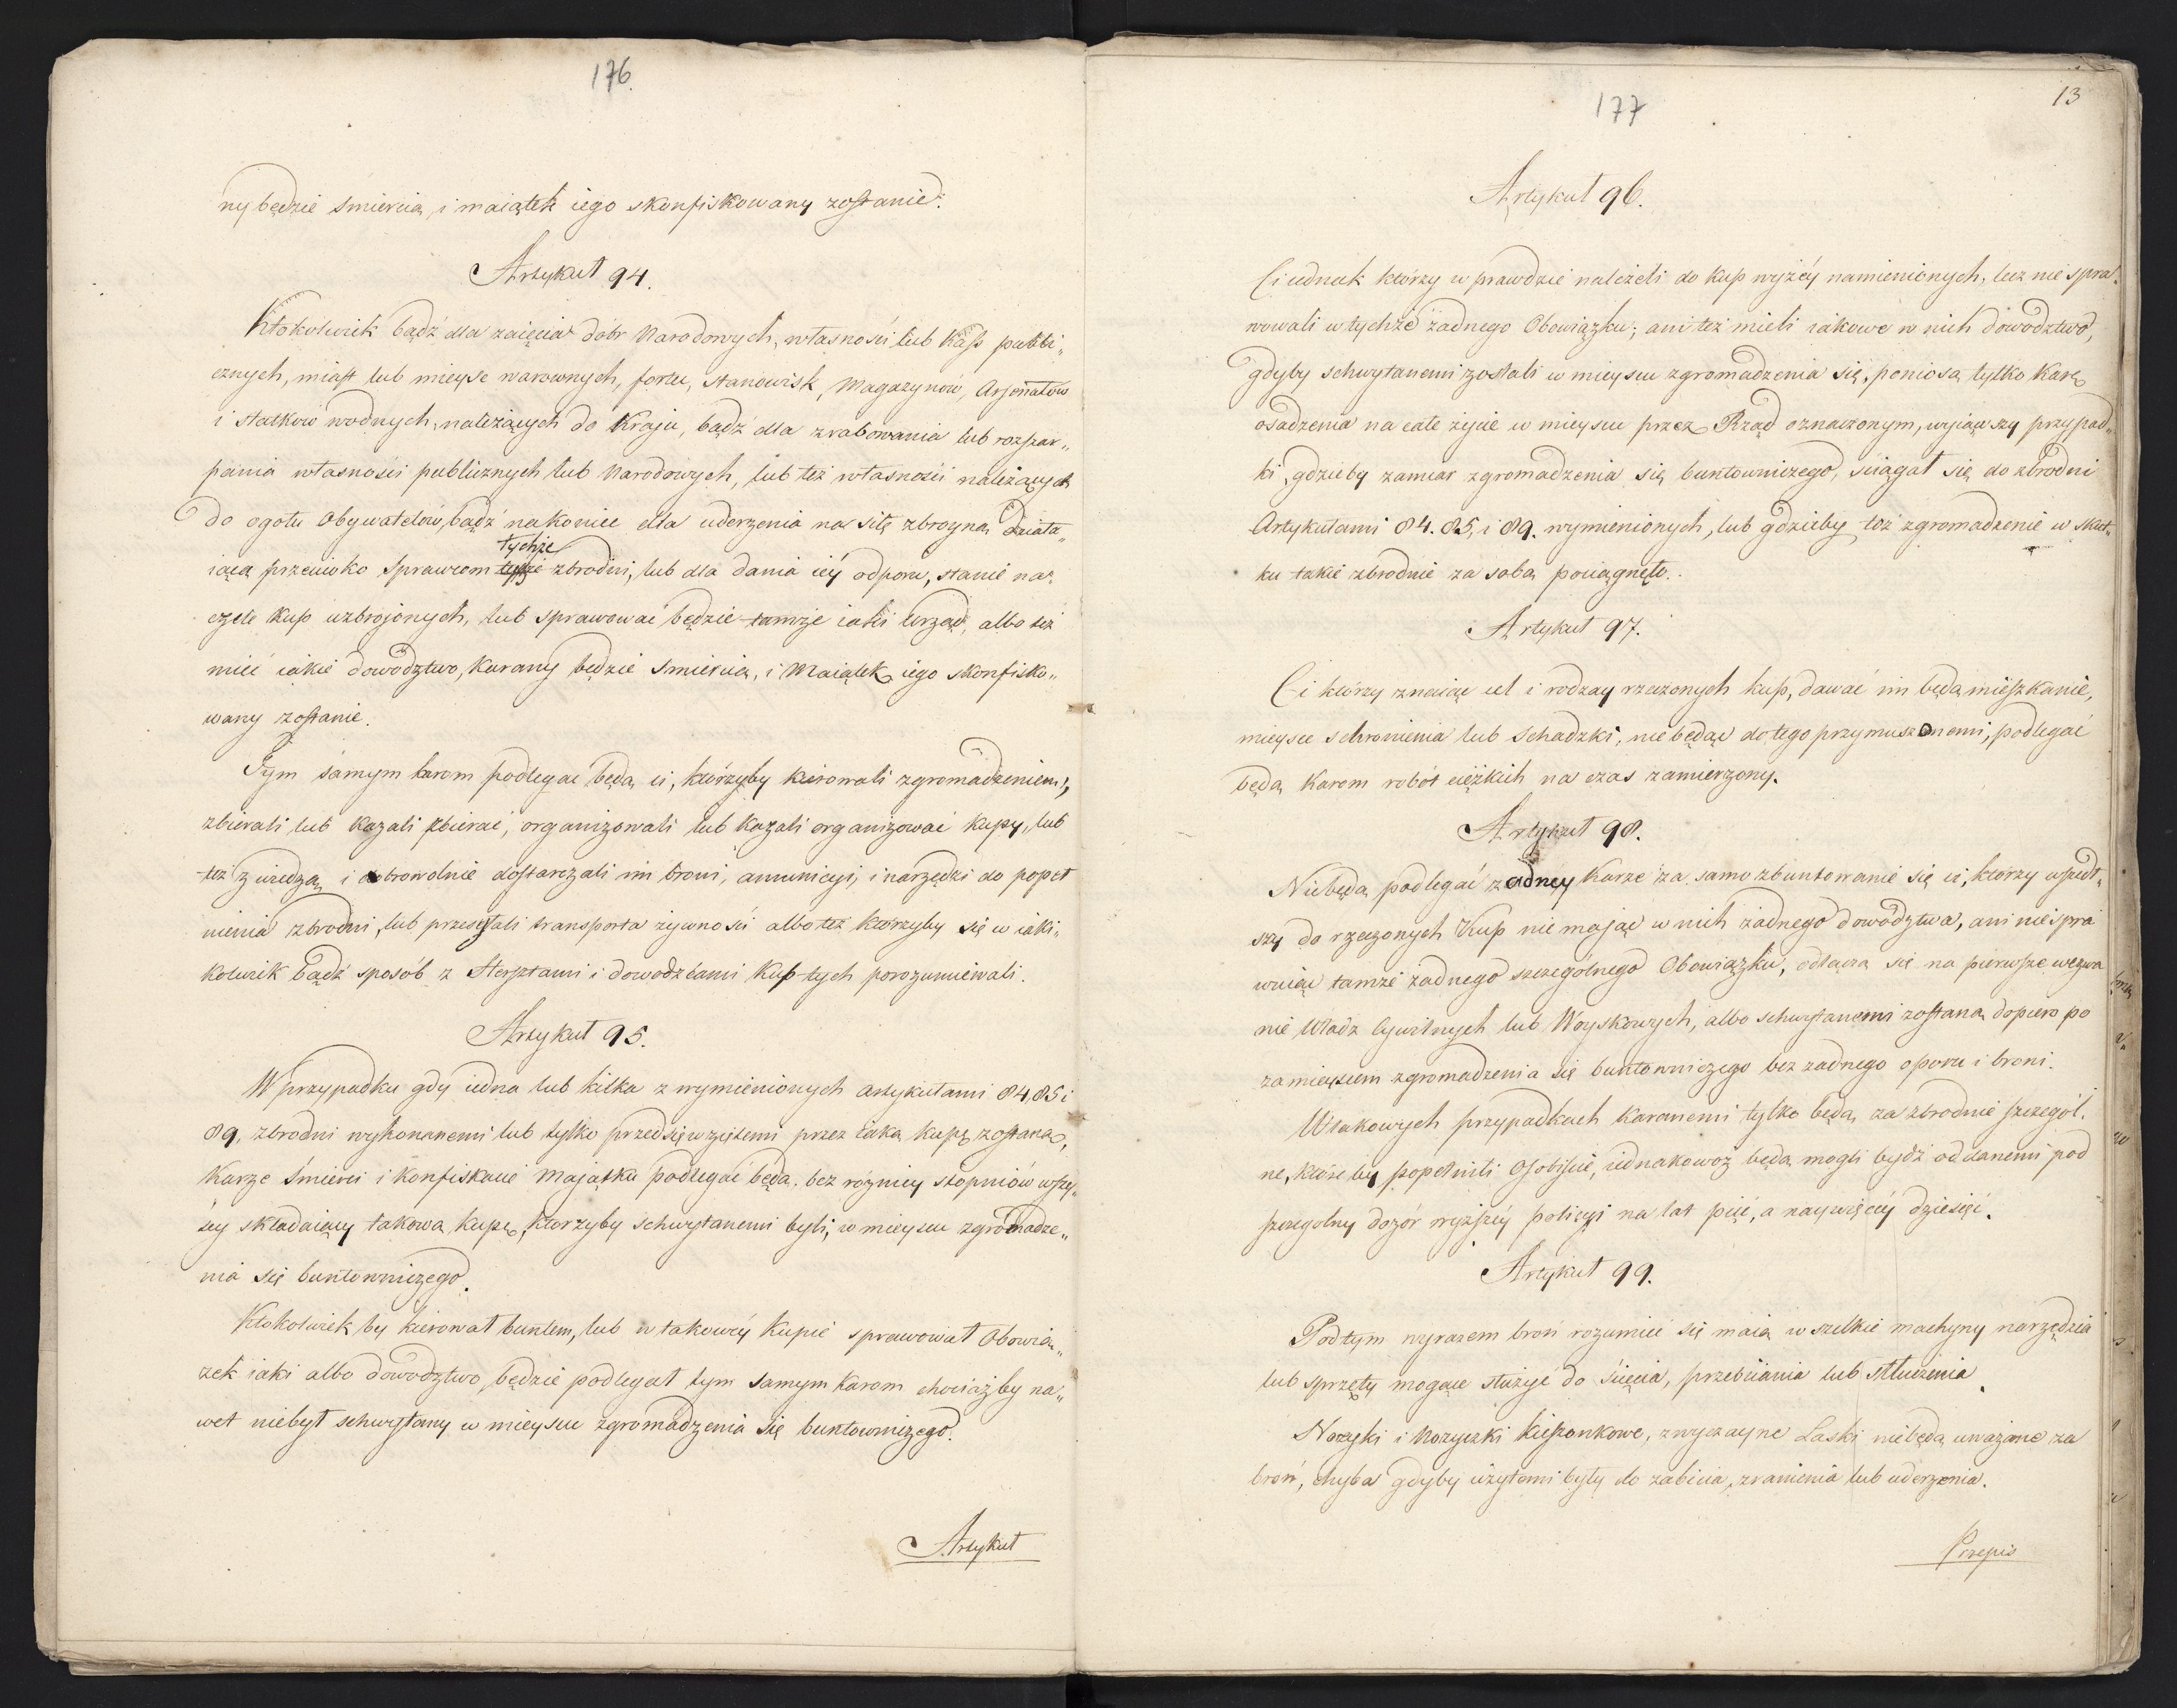 176.
ny będzie śmiercią, i maiątek iego skonfiskowany zostanie.
Artykuł 94.
Ktokolwiek bądź dla zaięcia dóbr Narodowych, własności lub Kass publi„
cznych, miast lub mieysc warownych, fortec, stanowisk, Magazynów, Arsenałów
i statków wodnych, należących do Kraju, bądź dla zrabowania lub rozszar„
pania własności publicznych lub Narodowych, lub też własności należących
do ogółu Obywatelów, bądź nakoniec dla uderzenia na siłę zbroyną działa„
iącą przeciwko Sprawcom tychże zbrodni, lub dla dania iéy odporu, stanie na
czele Kup uzbrojonych, lub sprawować będzie tamże iaki Urząd, albo też
mieć iakie dowództwo, Karany będzie śmiercią, i Maiątek iego skonfisko„
wany zostanie.
Tym samym karom podlegać będą ci, którzyby kierowali zgromadzeniem,
zbierali lub Kazali zbierać, organizowali lub Kazali organizować Kupy, lub
też z wiedzą i dobrowolnie dostarczali im broni, ammunicyi, i narzędzi do popeł
nienia zbrodni, lub przesyłali transporta żywności albo też którzyby się w iaki„
kolwiek bądź sposób z Hersztami i dowódzcami Kup tych porozumiewali.
Artykuł 95.
W przypadku gdy iedna lub kilka z wymienionych Artykułami 84, 85 i
89, zbrodni wykonanemi lub tylko przedsięwziętemi przez iaką Kupę zostaną,
Karze śmierci i konfiskacie Majątku podlegać będą bez różnicy stopniów wszy„
scy składaiący takową Kupę, którzyby schwytanemi byli, w mieyscu zgromadze„
nia się buntowniczego.
Ktokolwiek by kierował buntem, lub w takowéy Kupie sprawował Obowią„
zek iaki albo dowództwo, będzie podlegał tym samym Karom chociażby na„
wet niebył schwytany w mieyscu zgromadzenia się buntowniczego.
Artykuł
13
177
Artykuł 96.
Ci iednak którzy wprawdzie należeli do Kup wyżéy namienionych, lecz nie spra„
wowali w tychże żadnego Obowiązku; ani też mieli iakowe w nich dowództwo,
gdyby schwytanemi zostali w mieyscu zgromadzenia się, poniosą tylko Karę
osadzenia na całe życie w mieyscu przez Rząd oznaczonym, wyiąwszy przypad„
ki, gdzieby zamiar zgromadzenia się buntowniczego, ściągał się do zbrodni
Artykułami 84. 85, i 89. wymienionych, lub gdzieby toż zgromadzenie w skut„
ku takie zbrodnie za sobą pociągnęło.
Artykuł 97.
Ci którzy znaiąc cel i rodzay rzeczonych kup, dawać im będą mieszkanie,
mieysce schronienia lub Schadzki, nie będąc do tego przymuszonemi, podlegać
będą Karom robót ciężkich na czas zamierzony.
Artykuł 98.
Niebędą podlegać żadney Karze za samo zbuntowanie się ci, którzy wszedł„
szy do rzeczonych Kup nie mając w nich żadnego dowództwa, ani nie spra
wuiąc tamże żadnego szczególnego Obowiązku, odłączą się na pierwsze wezwa
nie Władz Cywilnych lub Woyskowych, albo schwytanemi zostaną dopiero po
za mieyscem zgromadzenia się buntowniczego bez żadnego oporu i broni.
W takowych przypadkach Karanemi tylko będą za zbrodnie szczegól„
ne, któreby popełnili Osobiście, iednakowoż będą mogli bydź oddanemi pod
szczególny dozór wyższéy policyi na lat pięć, a naywięcéy dziesięć.
Artykuł 99.
Pod tym wyrazem broń rozumieć się maią wszelkie machyny narzędzia
lub sprzęty mogące służyć do Cięcia, przebijania lub stłuczenia.
Nożyki i Nożyczki kieszonkowe, zwyczayne Laski niebędą uważane za
broń, chyba gdyby użytemi były do zabicia, zranienia lub uderzenia.
Przepis